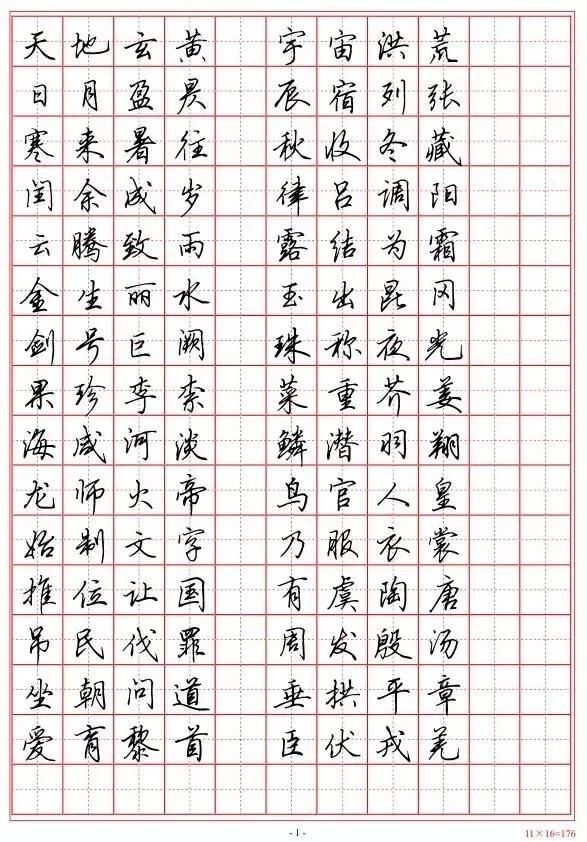 天地玄黄 宇宙洪荒
日月盈昃 辰宿列张
寒来暑往 秋收冬藏
闰余成岁 律吕调阳
云腾致雨 露结为霜
金生丽水 玉出昆冈
剑号巨阙 珠称夜光
果珍李柰 菜重芥姜
海咸河淡 鳞潜羽翔
龙师火帝 鸟官人皇
始制文字 乃服衣裳
推位让国 有虞陶唐
吊民伐罪 周发殷汤
坐朝问道 垂拱平章
爱育黎首 臣伏戎羌
- 1 -
11×16=176